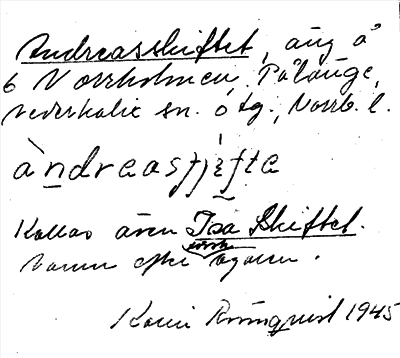 Andreasskiftet, äng å
6 Norrholmen, Pålänge,
Nederkalix sn. o tg., Norrb. l.
àndreasʃjìfte
Kallas även Isa Skiftet.
Namn efter förste ägaren.
Karin Rönnquist 1945